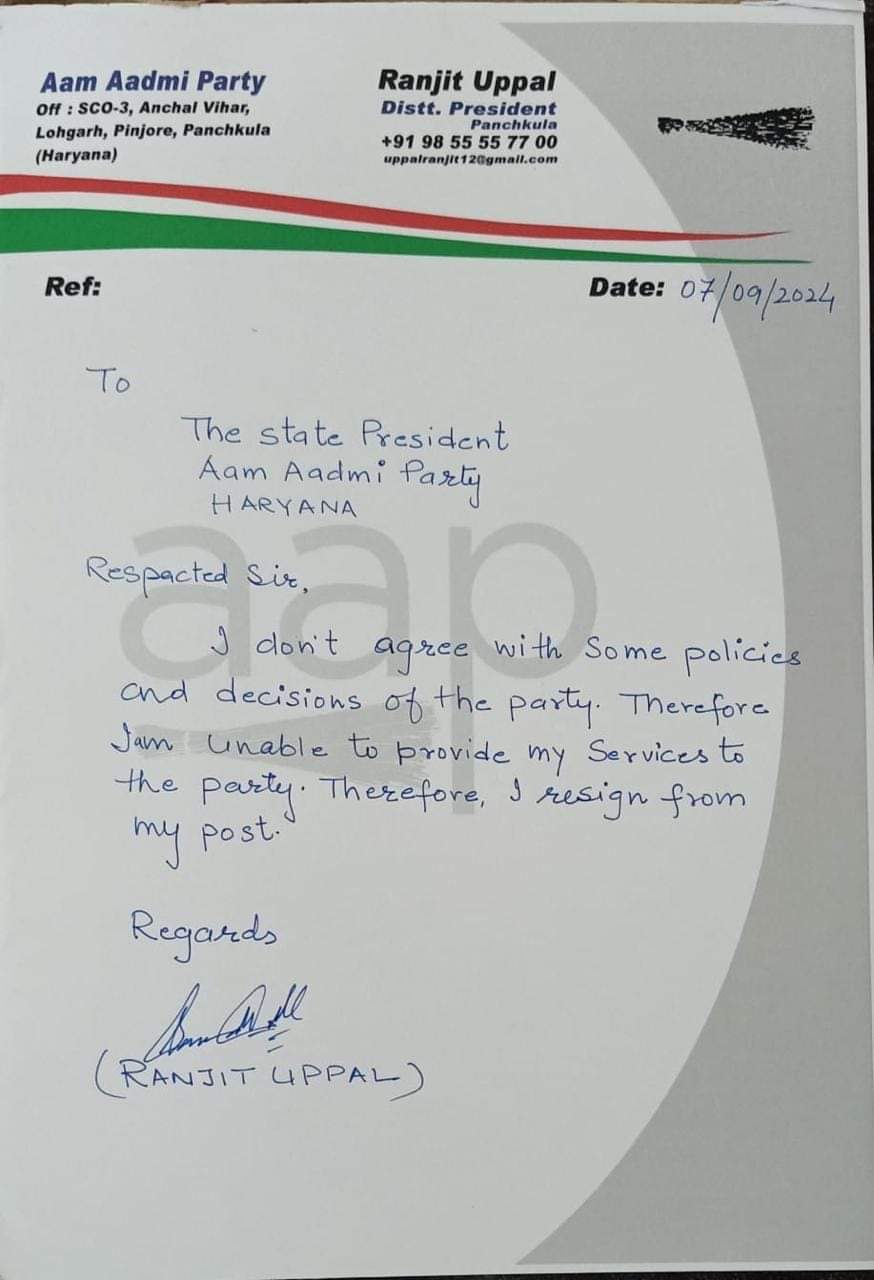 Aam Aadmi Party
Off : SCO-3, Anchal Vihar,
Lohgarh, Pinjore, Panchkula
(Haryana)
Ranjit Uppal
Distt. President
Panchkula
+91 98 55 55 77 00
uppalranjit12@gmail.com
Ref:
Date: 07/09/2024
To
The state President
Aam Aadmi Party
HARYANA
aap
Respacted Sir,
I don't agree with Some policies
and decisions of the party. Therefore
I am unable to provide my Services to
the party. Therefore, I resign from
my post.
Regards
(RANJIT UPPAL)